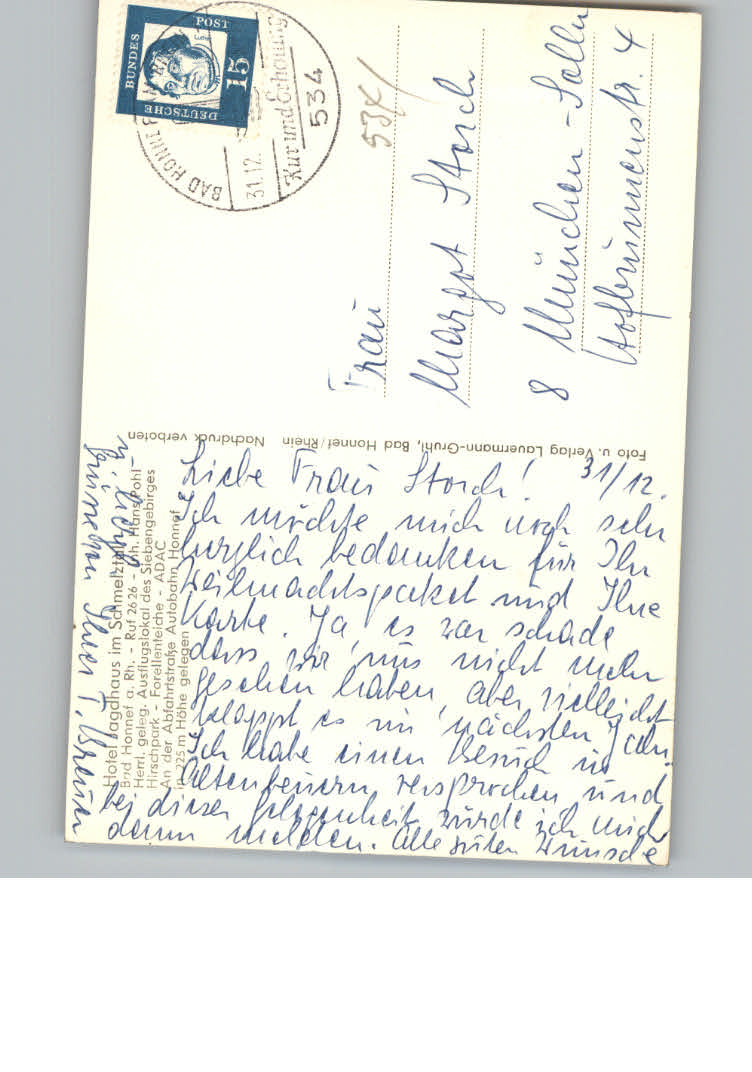 DEUTSCHE
BUNDES
POST
15
BAD HONNEF
31.12.
Kur und Erholung
534
534/
Frau
Margot Storch
8 München-Solln
Hofbrunnenstr. 4
Foto u. Verlag Lauermann-Gruhl, Bad Honnef/Rhein Nachdruck verboten
Hotel Jagdhaus im Schmelztal
Bad Honnef a. Rh. - Ruf 2626 - Inh. Hans Pohl
Herrl. geleg. Ausflugslokal des Siebengebirges
Hirschpark - Forellenteiche - ADAC
An der Abfahrtstraße Autobahn Honnef
in 225 m Höhe gelegen
31/12.
Liebe Frau Storch!
Ich möchte mich noch sehr
herzlich bedanken für Ihr
Weihnachtspaket und Ihre
Karte. Ja es war schade
dass wir uns nicht mehr
gesehen haben aber vielleicht
klappt es im nächsten Jahr.
Ich habe einen Besuch in
Altenbeuern versprochen und
bei dieser Gelegenheit würde ich mich
dann melden. Alle guten Wünsche
u. liebe
Grüße Ihnen